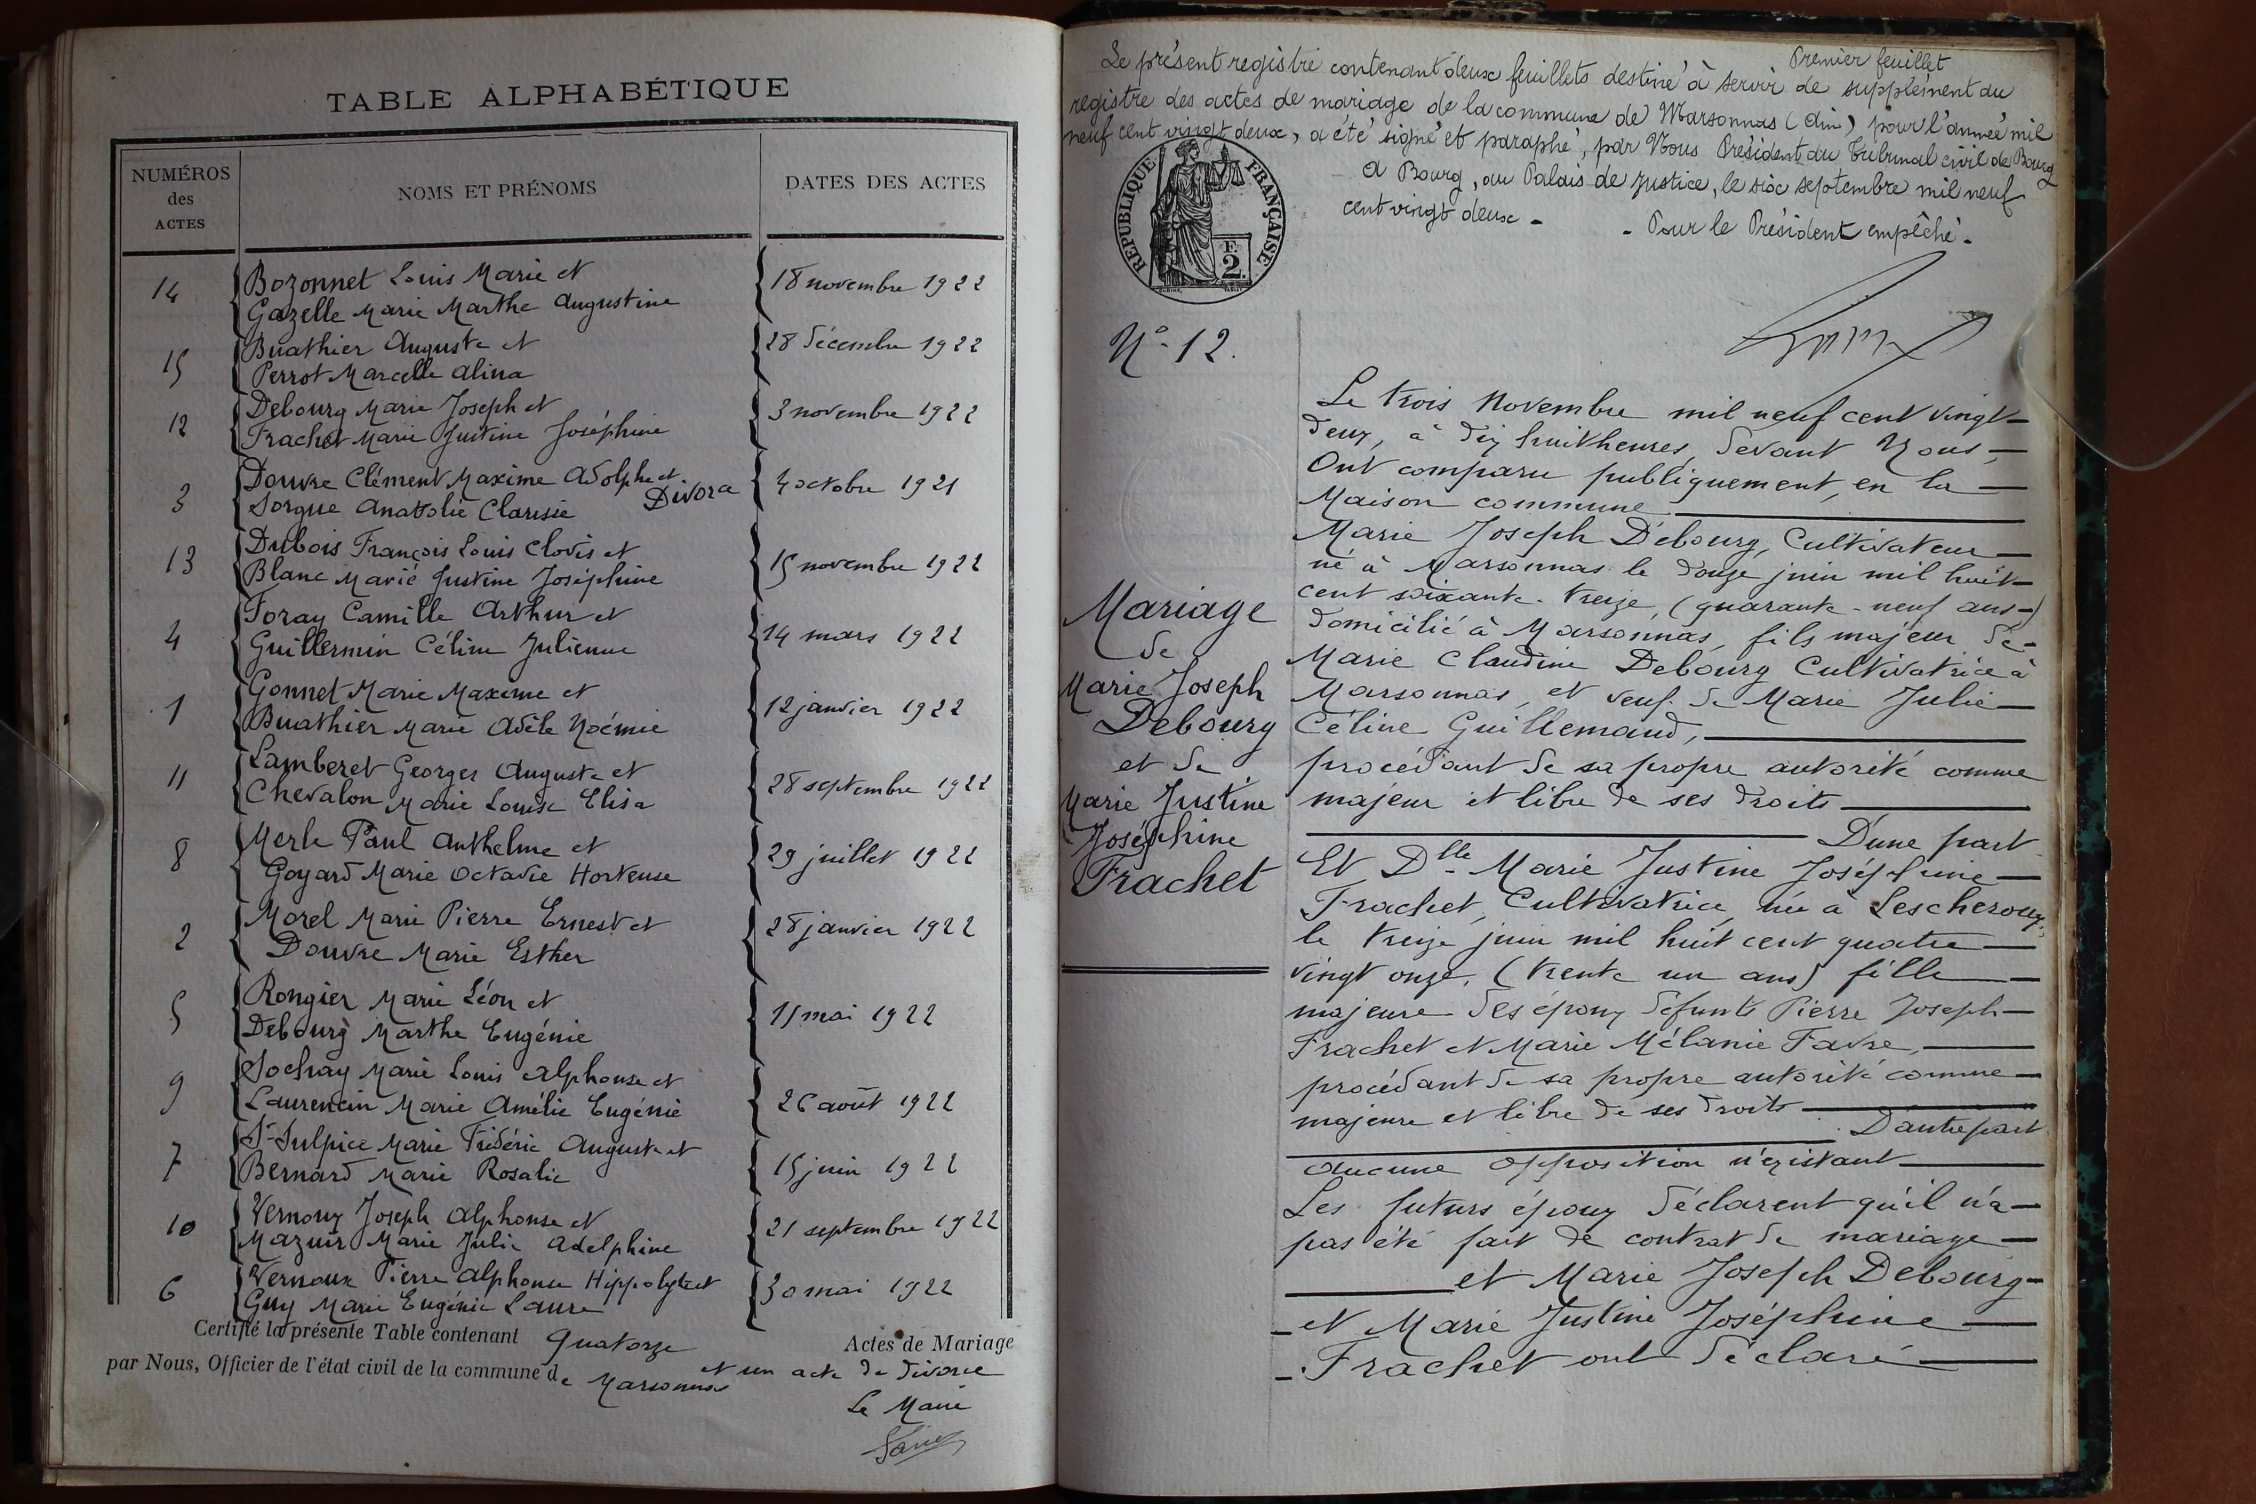 TABLE ALPHABÉTIQUE
NUMÉROS
des
ACTES
NOMS ET PRÉNOMS
DATES DES ACTES
14 Bozonnet Louis Marie et
Gazelle Marie Marthe Augustine
18 novembre 1922
15 Buathier Auguste et
Perrot Marcelle Alina
28 décembre 1922
12 Debourg Marie Joseph et
Frachet Marie Justine Joséphine
3 novembre 1922
3 Douvre Clément Maxime Adolphe et
Sorgue Anatolie Clarisie Divorce
4 octobre 1921
13 Dubois François Louis Clovis et
Blanc Marie Justine Joséphine
15 novembre 1922
4 Foray Camille Arthur et
Guillermin Céline Julienne
14 mars 1922
1 Gonnet Marie Maxime et
Buathier Marie Adèle Noémie
12 janvier 1922
11 Lamberet Georges Auguste et
Chevalon Marie Louise Elisa
28 septembre 1922
8 Merle Paul Anthelme et
Goyard Marie Octavie Hortense
29 juillet 1922
2 Morel Marie Pierre Ernest et
Douvre Marie Esther
28 janvier 1922
5 Rongier Marie Léon et
Debourg Marthe Eugénie
11 mai 1922
9 Sochay Marie Louis Alphonse et
Laurencin Marie Amélie Eugénie
26 août 1922
7 St-Sulpice Marie Frédéric Auguste et
Bernard Marie Rosalie
15 juin 1922
10 Vernoux Joseph Alphonse et
Mazuir Marie Julie Adelphine
21 septembre 1922
6 Vernoux Pierre Alphonse Hippolyte et
Guy Marie Eugénie Laure
30 mai 1922
Certifié la présente Table contenant Quatorze Actes de Mariage
et un acte de divorce
par Nous, Officier de l'état civil de la commune de Marsonnas
Le Maire
Premier feuillet
Le présent registre contenant deux feuillets destiné à servir de supplément au
registre des actes de mariage de la commune de Marsonnas (Ain) pour l'année mil
neuf cent vingt deux, a été signé et paraphé, par Nous Président du Tribunal civil de Bourg
A Bourg, au Palais de Justice, le six septembre mil neuf
cent vingt deux -
- Pour le Président empêché -
RÉPUBLIQUE FRANÇAISE
2F
No 12.
Mariage
de
Marie Joseph
Debourg
et de
Marie Justine
Joséphine
Frachet
Le trois Novembre mil neuf cent vingt-
deux, à dix huit heures, devant Nous,
Ont comparu publiquement, en la
Maison commune
Marie Joseph Debourg, Cultivateur
né à Marsonnas le douze juin mil huit
cent soixante-treize, (quarante-neuf ans)
domicilié à Marsonnas, fils majeur de
Marie Claudine Debourg Cultivatrice à
Marsonnas, et veuf de Marie Julie
Céline Guillemaud,
procédant de sa propre autorité comme
majeur et libre de ses droits
D'une part
Et Dlle Marie Justine Joséphine
Frachet, Cultivatrice, née à Lescheroux,
le treize juin mil huit cent quatre
vingt onze, (trente un ans) fille
majeure des époux défunts Pierre Joseph
Frachet et Marie Mélanie Favre,
procédant de sa propre autorité comme
majeure et libre de ses droits
D'autre part
Aucune opposition n'existant
Les futurs époux déclarent qu'il n'a
pas été fait de contrat de mariage
et Marie Joseph Debourg
et Marie Justine Joséphine
Frachet ont déclaré